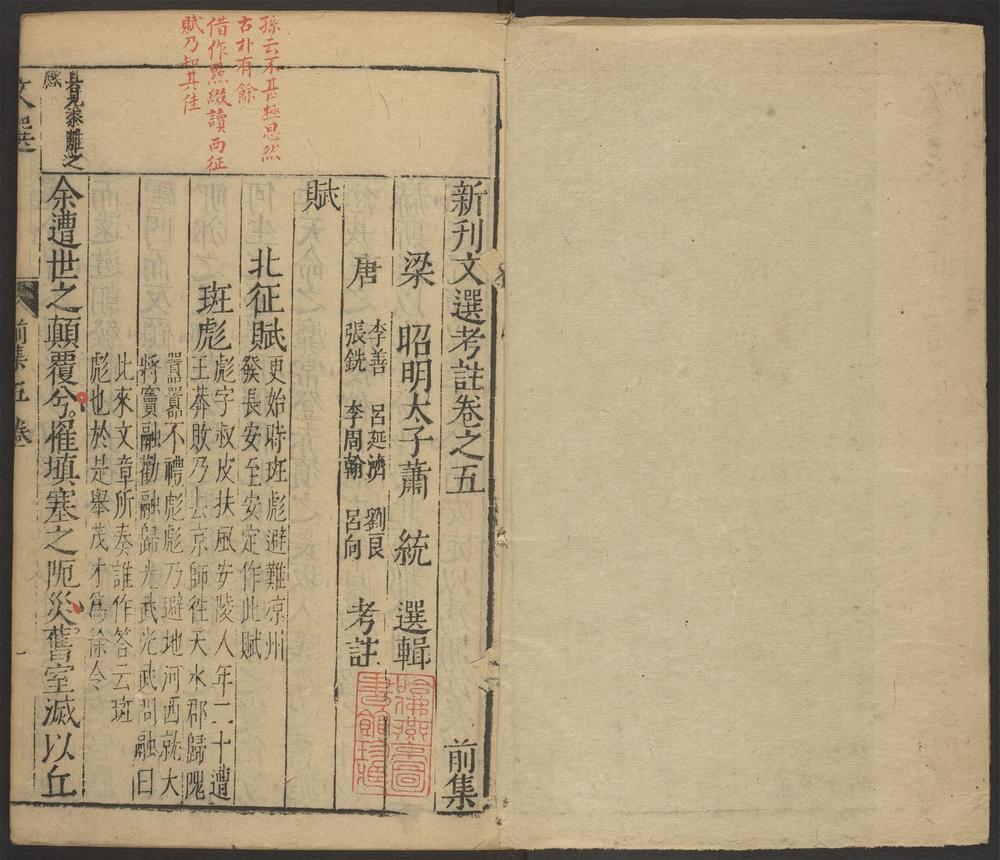 孫云不甚極思然
古朴有餘
借作點綴讀西征
賦乃知其佳
新刊文選考註卷之五
前集
梁 昭明太子蕭 統 選輯
唐 李善 呂延濟 劉良
張銑 李周翰 呂向
考註
哈佛燕京圖
書館珍藏
賦
北征賦
更始時班彪避難凉州
發長安至安定作此賦
班彪
彪字叔皮扶風安陵人年二十遭
王莽敗乃去京師徃天水郡歸隗
囂囂不禮彪彪乃避地河西就大
將竇融勸融歸光武光武問融曰
此來文章所奏誰作答云班
彪也於是舉茂才爲徐令
余遭世之顛覆兮罹填塞之阨災舊室滅以丘
黍離之
感
文選
前集五卷
一